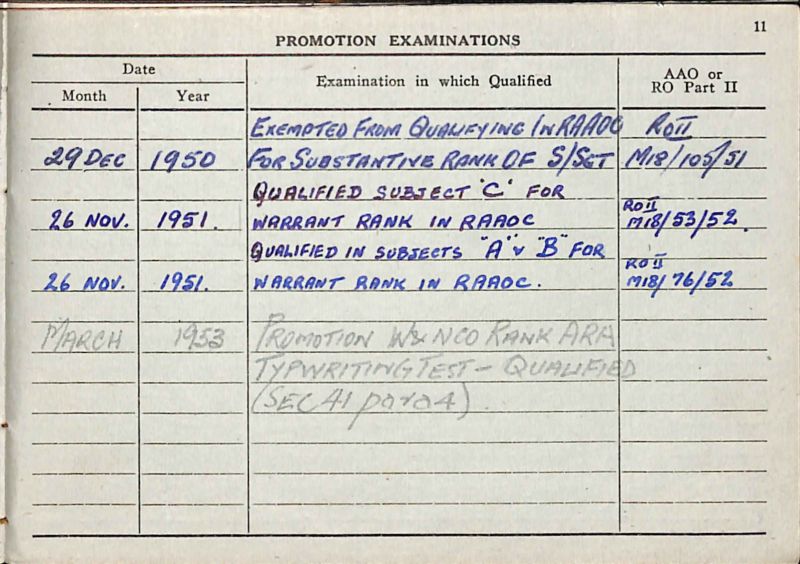 11
PROMOTION EXAMINATIONS
Date
Examination in which Qualified
AAO or
RO Part II
Month Year
EXEMPTED FROM QUALIFYING IN RAAOC ROII
29 DEC 1950 FOR SUBSTANTIVE RANK OF S/SGT M18/105/51
QUALIFIED SUBJECT "C" FOR
26 NOV. 1951. WARRANT RANK IN RAAOC ROII M18/53/52.
QUALIFIED IN SUBJECTS "A" & "B" FOR
26 NOV. 1951. WARRANT RANK IN RAAOC. ROII M18/76/52
MARCH 1953 PROMOTION W& NCO RANK ARA
TYPWRITING TEST - QUALIFIED
(SEC 41 para 4).